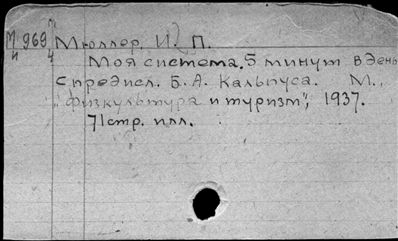 М 969 Мюллер, И. П.
Моя система. 5 минут в день
с предисл. Б. А. Кальпуса. М.,
"физкультура и туризм", 1937.
71 стр. илл.